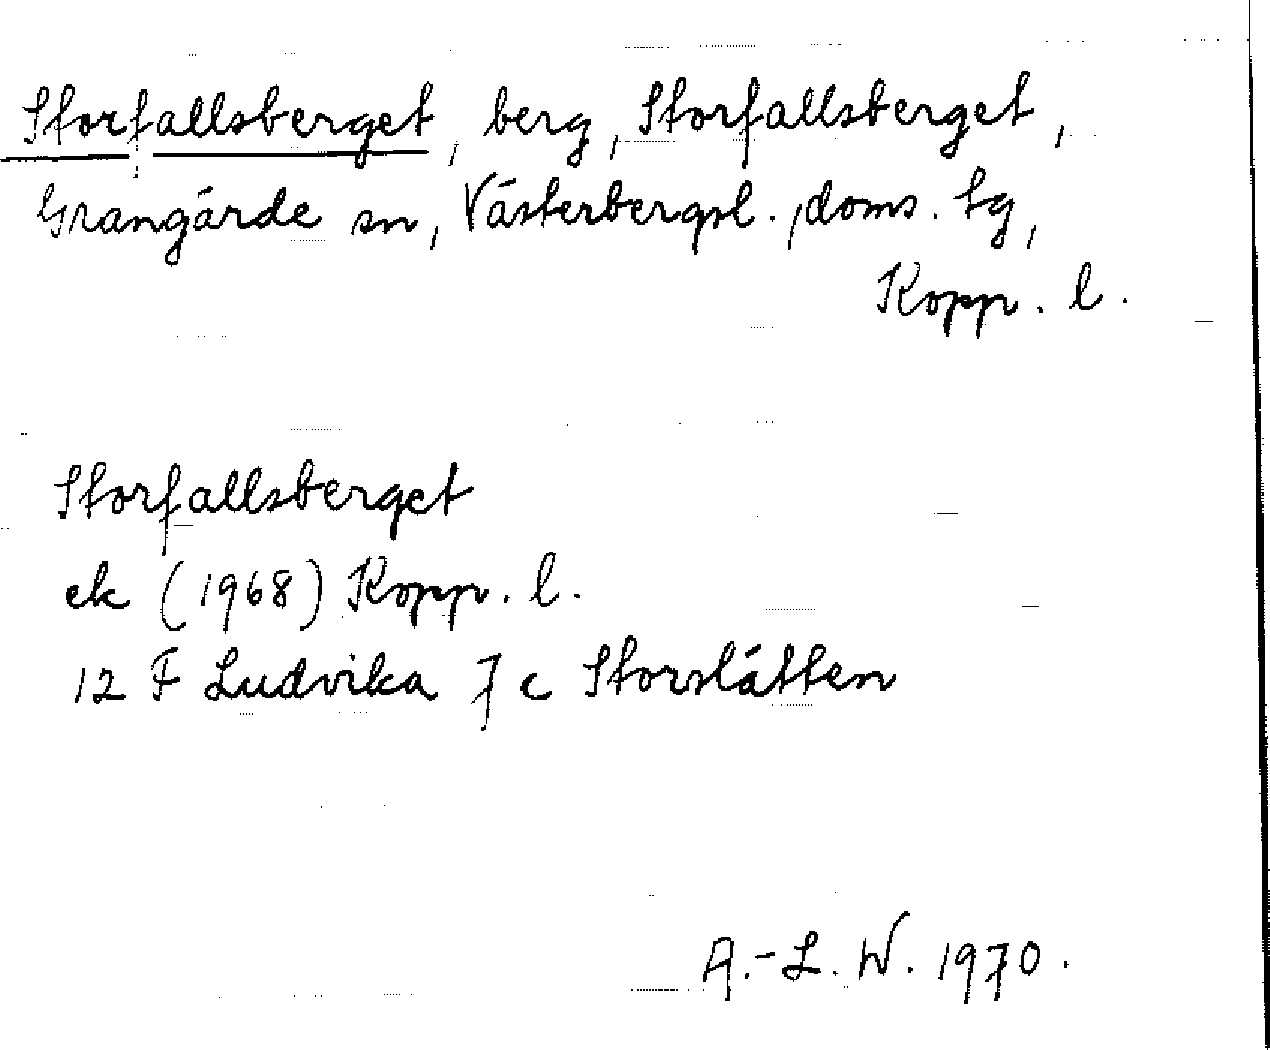 Storfallsberget, berg, Storfallsberget,
Grangärde sn, Västerbergsl., doms. tg,
Kopp. l.
Storfallsberget
ek (1968) Kopp. l.
12 F Ludvika 7 c Storslätten
A.-L. W. 1970.